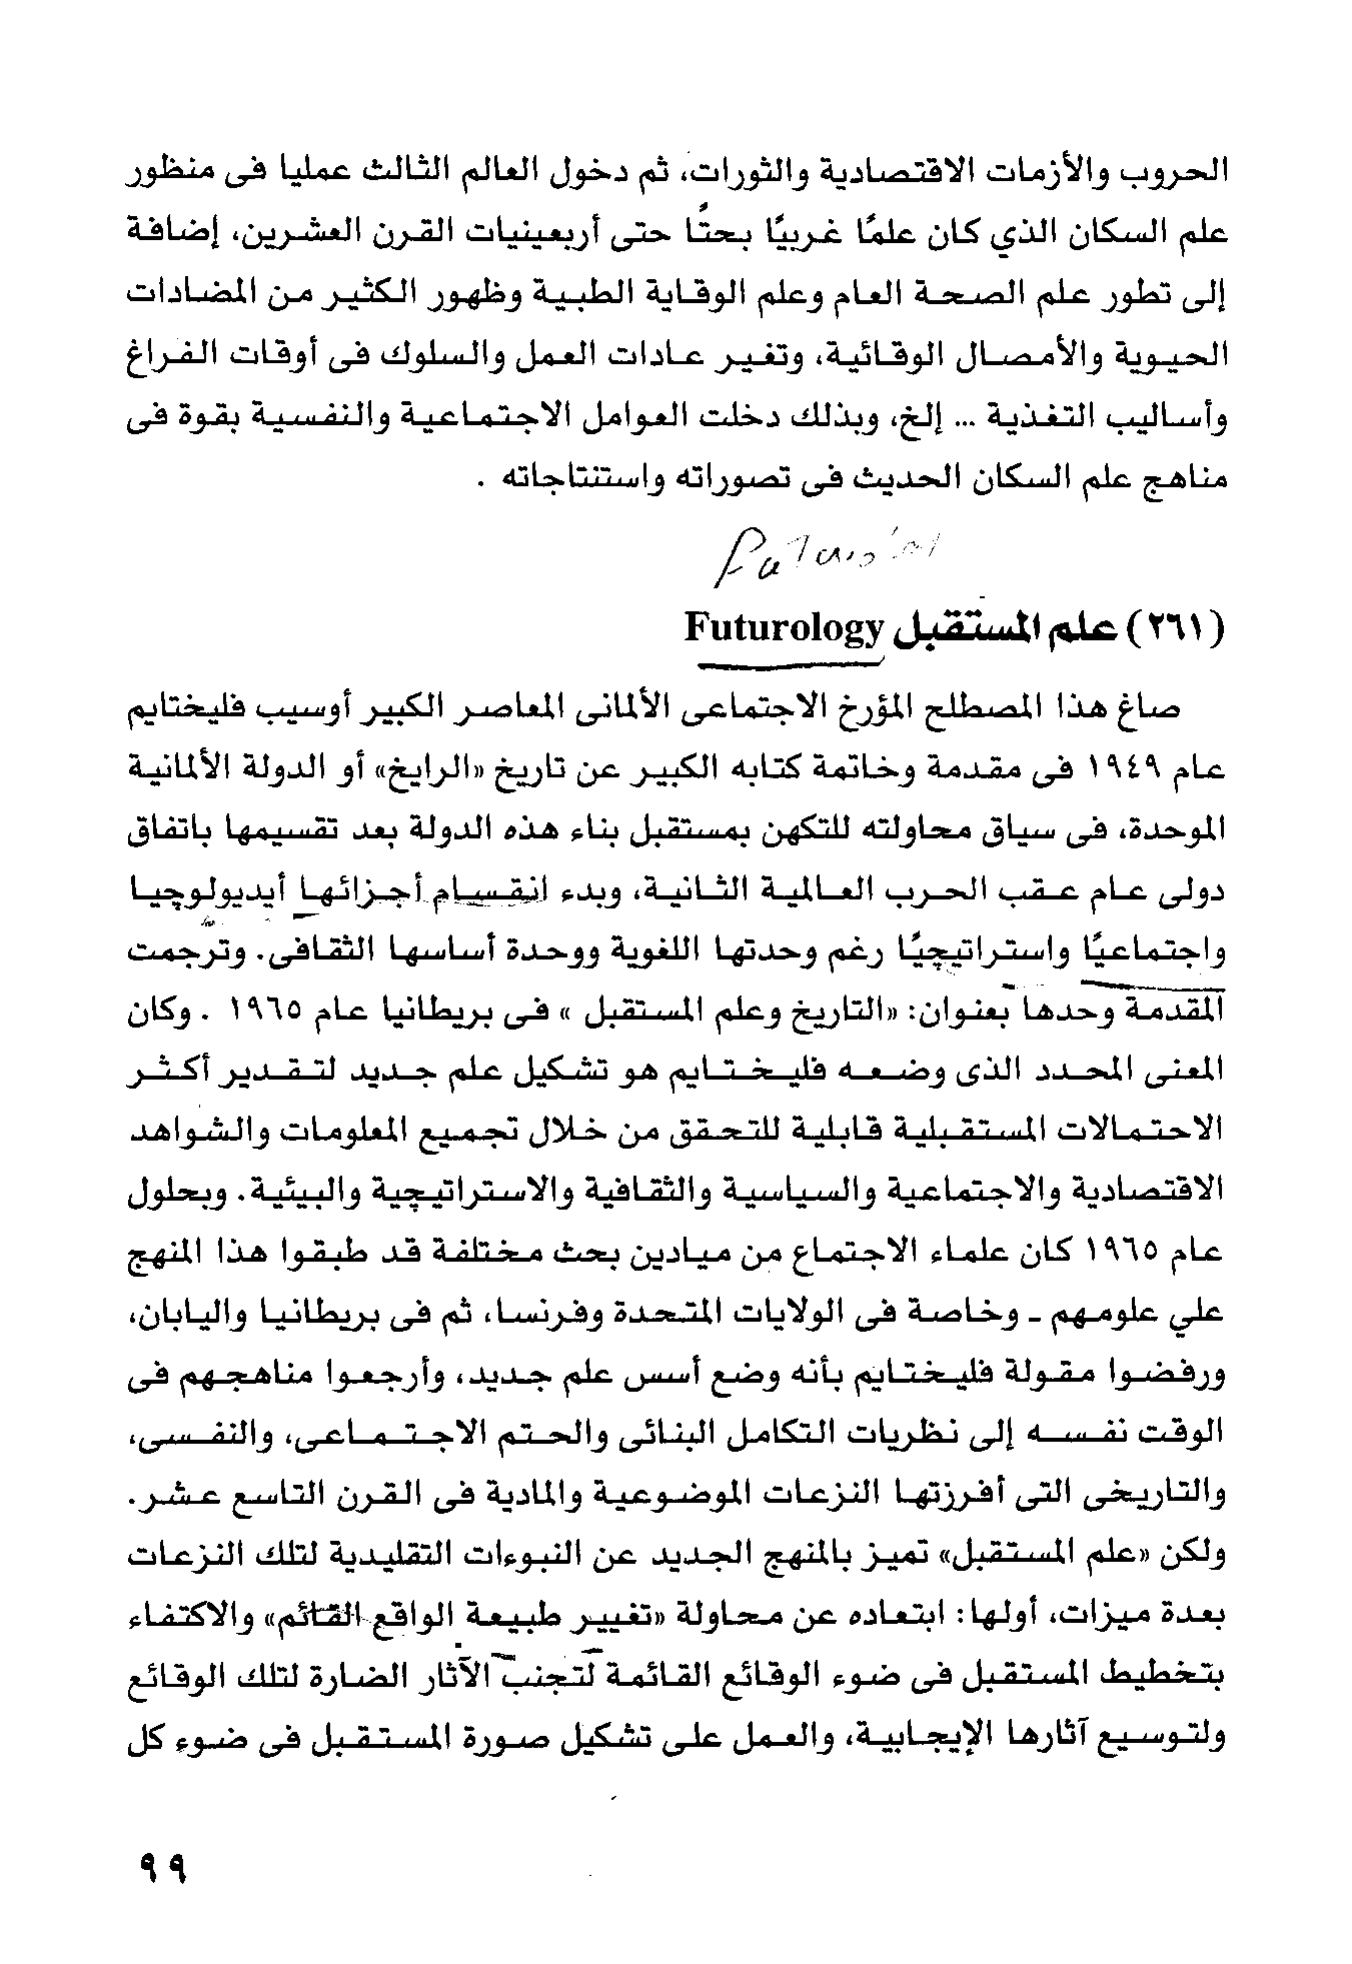 الحروب والأزمات الاقتصادية والثورات، ثم دخول العالم الثالث عمليا فى منظور
علم السكان الذي كان علمًا غربيًا بحتًا حتى أربعينيات القرن العشرين، إضافة
إلى تطور علم الصحة العام وعلم الوقاية الطبية وظهور الكثير من المضادات
الحيوية والأمصال الوقائية، وتغير عادات العمل والسلوك فى أوقات الفراغ
وأساليب التغذية ... إلخ، وبذلك دخلت العوامل الاجتماعية والنفسية بقوة فى
مناهج علم السكان الحديث فى تصوراته واستنتاجاته .
(٢٦١) علم المستقبل Futurology
صاغ هذا المصطلح المؤرخ الاجتماعى الألمانى المعاصر الكبير أوسيب فليختايم
عام ١٩٤٩ فى مقدمة وخاتمة كتابه الكبير عن تاريخ «الرايخ» أو الدولة الألمانية
الموحدة، فى سياق محاولته للتكهن بمستقبل بناء هذه الدولة بعد تقسيمها باتفاق
دولى عام عقب الحرب العالمية الثانية، وبدء انقسام أجزائها أيديولوجيا
واجتماعيًا واستراتيچيًا رغم وحدتها اللغوية ووحدة أساسها الثقافى. وترجمت
المقدمة وحدها بعنوان: «التاريخ وعلم المستقبل » فى بريطانيا عام ١٩٦٥ . وكان
المعنى المحدد الذى وضعه فليختايم هو تشكيل علم جديد لتقدير أكثر
الاحتمالات المستقبلية قابلية للتحقق من خلال تجميع المعلومات والشواهد
الاقتصادية والاجتماعية والسياسية والثقافية والاستراتيچية والبيئية. وبحلول
عام ١٩٦٥ كان علماء الاجتماع من ميادين بحث مختلفة قد طبقوا هذا المنهج
علي علومهم - وخاصة فى الولايات المتحدة وفرنسا، ثم فى بريطانيا واليابان،
ورفضوا مقولة فليختايم بأنه وضع أسس علم جديد، وأرجعوا مناهجهم فى
الوقت نفسه إلى نظريات التكامل البنائى والحتم الاجتماعى، والنفسى،
والتاريخى التى أفرزتها النزعات الموضوعية والمادية فى القرن التاسع عشر.
ولكن «علم المستقبل» تميز بالمنهج الجديد عن النبوءات التقليدية لتلك النزعات
بعدة ميزات، أولها: ابتعاده عن محاولة «تغيير طبيعة الواقع القائم» والاكتفاء
بتخطيط المستقبل فى ضوء الوقائع القائمة لتجنب الآثار الضارة لتلك الوقائع
ولتوسيع آثارها الإيجابية، والعمل على تشكيل صورة المستقبل فى ضوء كل
٩٩